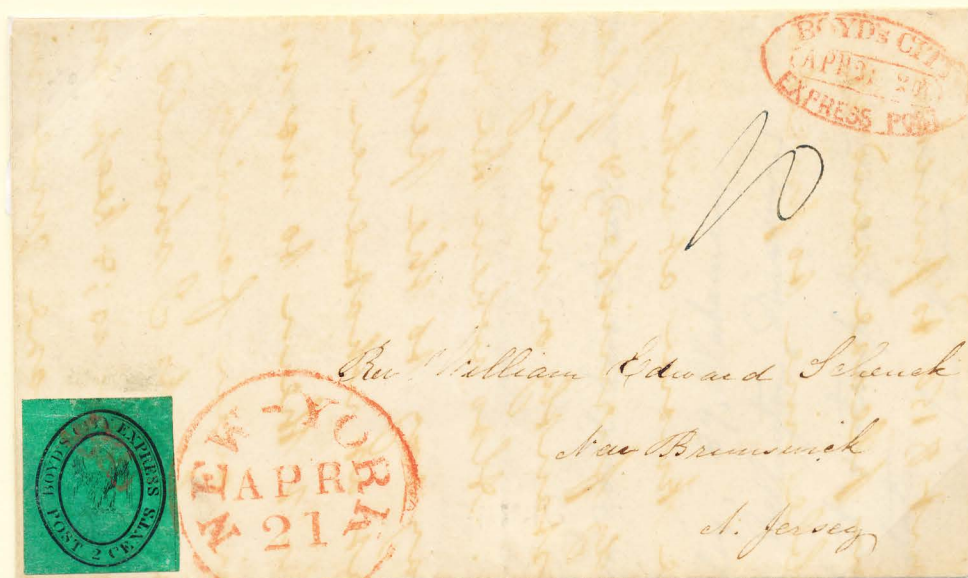 BOYD'S CITY
APR 21
EXPRESS POST
10
Rev William Edward Schenck
New Brunswick
N. Jersey
BOYD'S CITY EXPRESS
POST 2 CENTS
NEW-YORK
APR
21